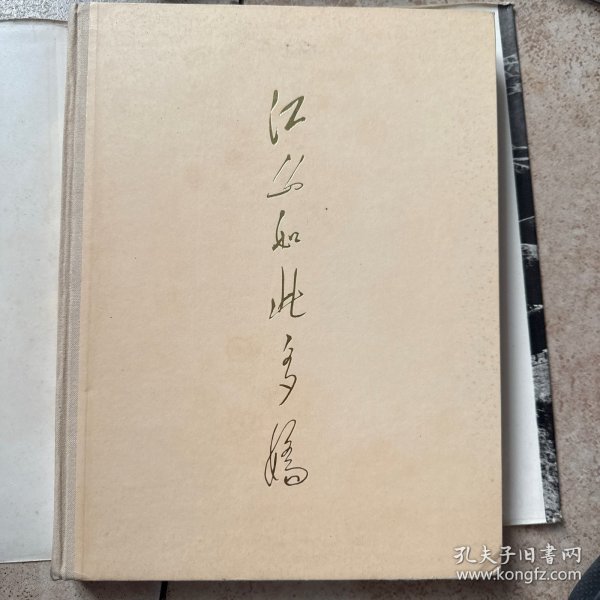 江山如此多娇
孔夫子旧書网
www.kongfz.com